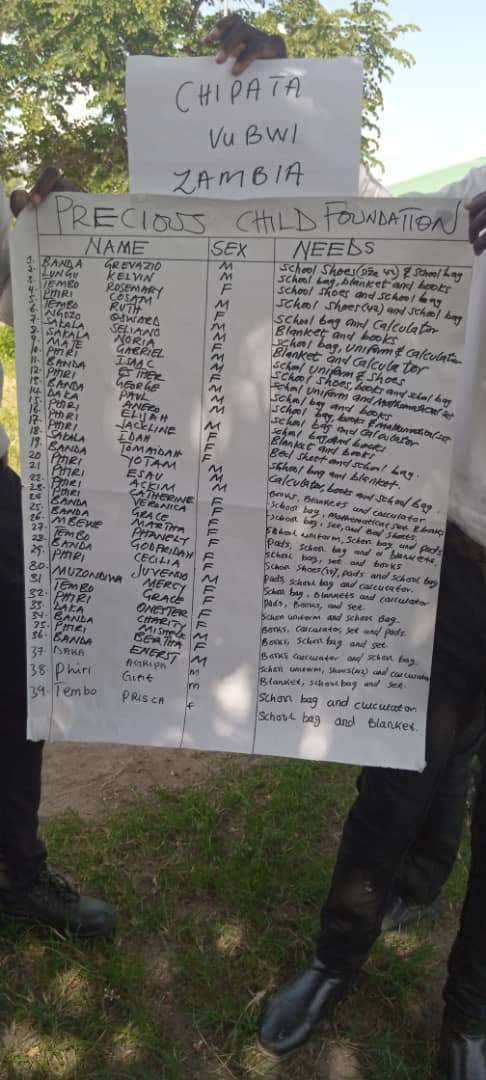 CHIPATA
VUBWI
ZAMBIA
PRECIOUS CHILD FOUNDATION
NAME SEX NEEDS
1. BANDA GREVAZIO M School Shoes (size 42) & School bag
2. LUNGU KELVIN M School bag, blanket and books
3. TEMBO ROSEMARY F School shoes and school bag
4. PHIRI COSAM M School shoes (42) and school bag
5. TEMBO RUTH F School bag and Calculator
6. NGOZO OSWORD M Blanket and books
7. SAKALA SELIANO M School bag, uniform & calculator
8. SAKALA NORIA F Blanket and Calculator
9. MAJE GABRIEL M School uniform & shoes
10. PHIRI ISAAC M School shoes, books and school bag
11. BANDA ESTHER F School uniform and Mathematical set
12. PHIRI GEORGE M School bag and books
13. BANDA PAUL M School bag, books & Mathematical set
14. DAKA M School bag and calculator
15. PHIRI ELIJAH M School bag and books
16. PHIRI JACKLINE F Blanket and books
17. PHIRI IDAH F Bed sheet and school bag.
18. SAKALA TOMAIDAH F School bag and blanket.
19. BANDA YOTAM M Calculator, books and school bag.
20 PHIRI ESAU M Books, Blankets and calculator
21 PHIRI ACKIM M School bag, mathematical set & books
22. PHIRI CATHERINE F School bag, set and Bed sheets.
BANDA VERONICA F School uniform, School bag and pads
BANDA GRACE F Pads, School bag and a blanket.
MBEWE MARTHA F School bag, set and books
TEMBO F School Shoes, pads and school bag
BANDA GODFRIDAH F Pads, school bag and calculator.
PHIRI CECILIA F School bag, Blankets and calculator
MUZONDIWA JUVENTO M Pads, Books, and set.
TEMBO MERCY F School uniform and School Bag.
32. PHIRI GRACE F Books, Calculator, set and pads.
33. DAKA ONESTER F School bag and set.
34. BANDA CHARITY F
35. PHIRI M Books calculator and school bag.
36. BANDA BERTHA F School uniform, Shoes (42) and calculator
37. DAKA ENERST M Blanket, school bag and set.
38. Phiri GIFT m School bag and calculator.
39. Tembo PRISCA f School bag and Blanket.